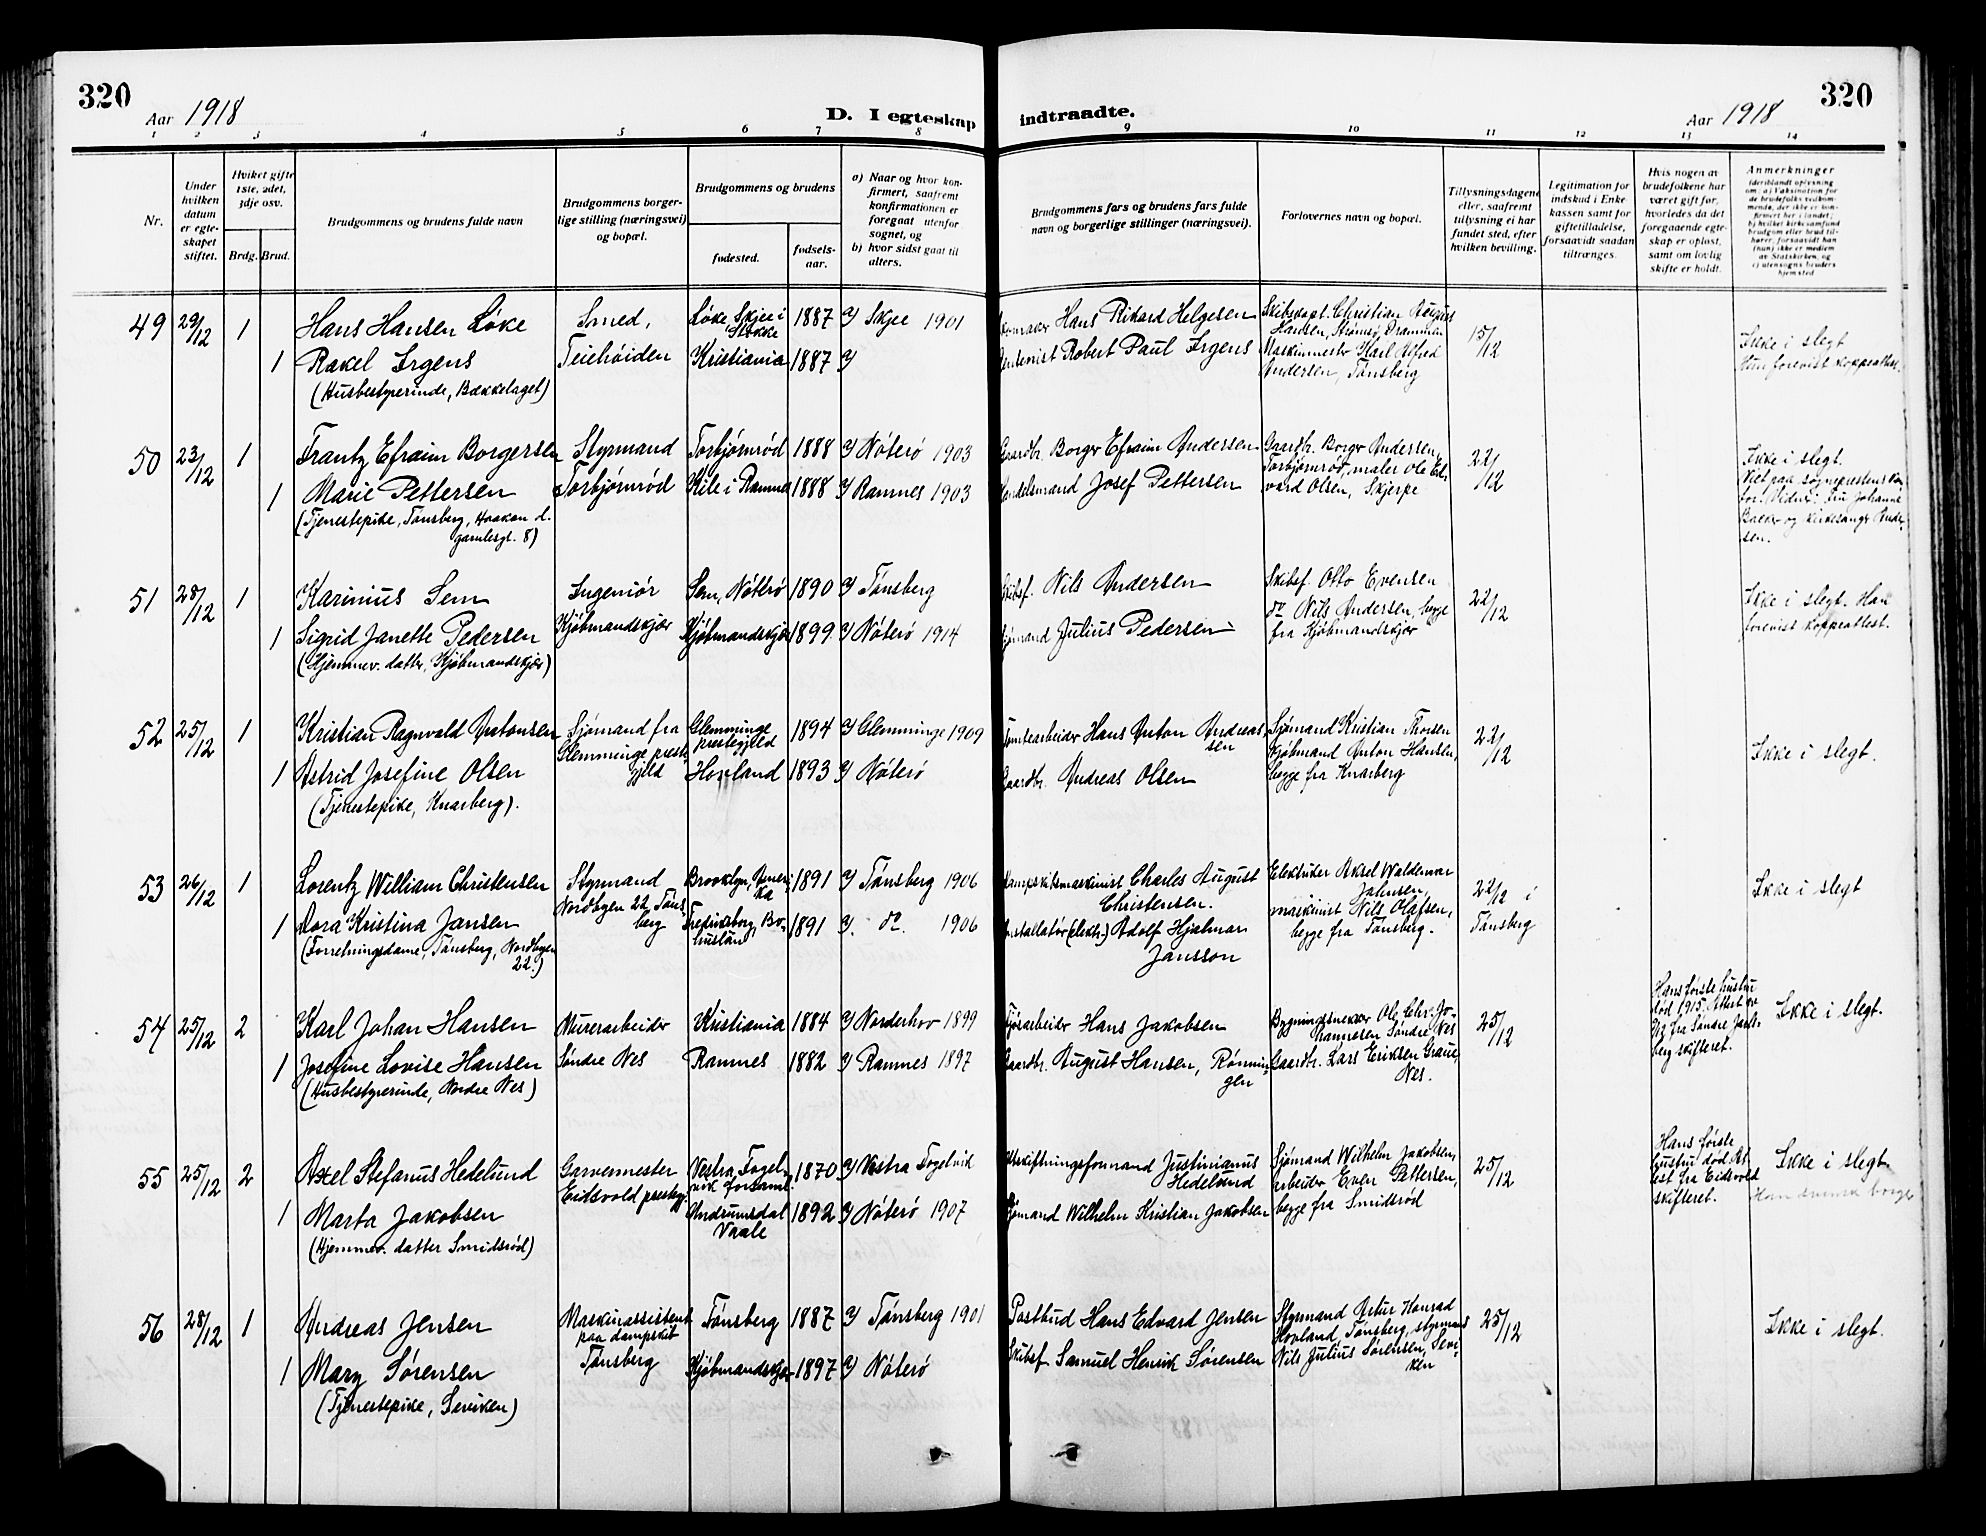 320
Aar 1918
D. I egteskap indtraadte.
Aar 1918
320
1 2 3 4 5 6 7 8 9 10 11 12 13 14
Nr.
Under hvilken datum er egteskapet stiftet.
Hviket gifte 1ste, 2det, 3dje osv.
Brdg. Brud.
Brudgommens og brudens fulde navn
Brudgommens borgerlige stilling (næringsvei) og bopæl.
Brudgommens og brudens
fødested.
fødselsaar.
a) Naar og hvor konfirmert, saafremt konfirmationen er foregaat utenfor sognet, og
b) hvor sidst gaat til alters.
Brudgommens fars og brudens fars fulde navn og borgerlige stillinger (næringsvei).
Forlovernes navn og bopæl.
Tillysningsdagene eller, saafremt tillysning ei har fundet sted, efter hvilken bevilling.
Legitimation for indskud i Enkekassen samt for giftetilladelse, forsaavidt saadan tiltrænges.
Hvis nogen av brudefolkene har været gift før, hvorledes da det foregaaende egteskap er opløst, samt om lovlig skifte er holdt.
Anmerkninger
(deriblandt oplysning om: a) Vaksination for de brudefolks vedkommende, der ikke er konfirmert her i landet; b) hvilket kirkesamfund brudgom eller brud tilhører, forsaavidt han (hun) ikke er medlem av Statskirken, og c) utensogns bruders hjemsted
49 29/12 1 Hans Hansen Løke Smed, Løke, Skjee i Stokke 1887 Skjee 1901 Hans Rikard Helgesen Skibskapt. Christian August Hansen, Strømsø, Drammen 15/12 Ikke i slegt
1 Rakel Irgens Teiehöiden Kristiania 1887 Robert Paul Irgens Maskinmester Karl Alfred Andersen, Tønsberg Hun forevist koppeattest.
(Husbestyrerinde, Bækkelaget)
50 23/12 1 Frantz Efraim Borgersen Styrmand Torbjørnrød 1888 Nöterö 1903 Gaardbr. Borger Efraim Andersen Gaardbr. Borger Andersen, Torbjørnrød, maler Ole Edvard Olsen, Skjerpe 22/12 Ikke i slegt.
1 Marie Pettersen Torbjørnrød Kile i Ramnes 1888 Ramnes 1903 Handelsmand Josef Pettersen Viet paa sogneprestens kontor. Vidner: Fru Johanne Bakke og kirkesanger Andersen.
(Tjenestepike, Tønsberg, Haakon d. gamlesgt. 8)
51 28/12 1 Karinius Sem Ingeniør Sem, Nöterö 1890 Tønsberg Skibsf. Nils Andersen Skibsf. Otto Evensen 22/12 Ikke i slegt. Han forevist koppeattest.
1 Sigrid Janette Pedersen Kjøbmandskjær Kjøbmandskjær 1899 Nöterö 1914 Sjømand Julius Pedersen do Nils Andersen, begge fra Kjøbmandskjær
(Hjemmev. datter, Kjøbmandskjær)
52 25/12 1 Kristian Ragnvald Antonsen Sjømand fra Glemminge prestegjeld Glemminge prestegjeld 1894 Glemminge 1909 Tomtearbeider Hans Anton Andreassen Sjømand Kristian Thorsen Kjøbmand Anton Hansen, begge fra Knarberg 22/12 Ikke i slegt.
1 Astrid Josefine Olsen Hovland 1893 Nöterö Gaardbr. Andreas Olsen
(Tjenestepike, Knarberg).
53 26/12 1 Lorentz William Christensen Styrmand Nordbyen 22, Tønsberg Brooklyn, Amerika 1891 Tønsberg 1906 Dampskibsmaskinist Charles August Christensen. Elektriker Aksel Waldemar Jahnsen, maskinist Nils Olafsen, begge fra Tønsberg. 22/12 i Tønsberg Ikke i slegt
1 Dora Kristina Jansen Fredriksborg, Bohuslän 1891 do. 1906 Installatør (elektr.) Adolf Hjalmar Jansson
(Forretningsdame, Tønsberg, Nordbyen 22.)
54 25/12 2 Karl Johan Hansen Murerarbeider Kristiania 1884 Norderhov 1899 Hans Jakobsen Bygningssnekker Ole Chr. Johannesen Søndre Nes 25/12 Hans første hustru død 1915. fra Søndre Jarlsberg skifteret. Ikke i slegt.
1 Josefine Lovise Hansen Søndre Nes Ramnes 1882 Ramnes 1897 Gaardbr. August Hansen, Rønningen Gaardbr. Lars Eriksen Graue, Nes.
(Husbestyrerinde, Nordre Nes)
55 25/12 2 Axel Stefanus Hedelund Garvermester Eidsvold prestegj. Vestra Fogelvik forsaml. 1870 Vestra Fogelvik Utskiftningsformand Justinianus Hedelund Sjømand Wilhelm Jakobsen, arbeider Even Pettersen, begge fra Smidsrød 25/12 Hans første hustru død. Attest fra Eidsvold skifteret. Ikke i slegt.
Han svensk borger
1 Marta Jakobsen Andrumsdal Vaale 1892 Nöterö 1907 Sjømand Wilhelm Kristian Jakobsen
(Hjemmev. datter Smidsrød)
56 28/12 1 Andreas Jensen Maskinassistent paa dampskib Tønsberg Tønsberg 1887 Tønsberg 1901 Postbud Hans Edvard Jensen Styrmand Artur Konrad Hovland, Tønsberg, styrmand Nils Julius Sørensen, Seviken 25/12 Ikke i slegt.
1 Mary Sørensen Kjøbmandskjær 1897 Nöterö Skibsf Samuel Henrik Sørensen
(Tjenestepike, Seviken)